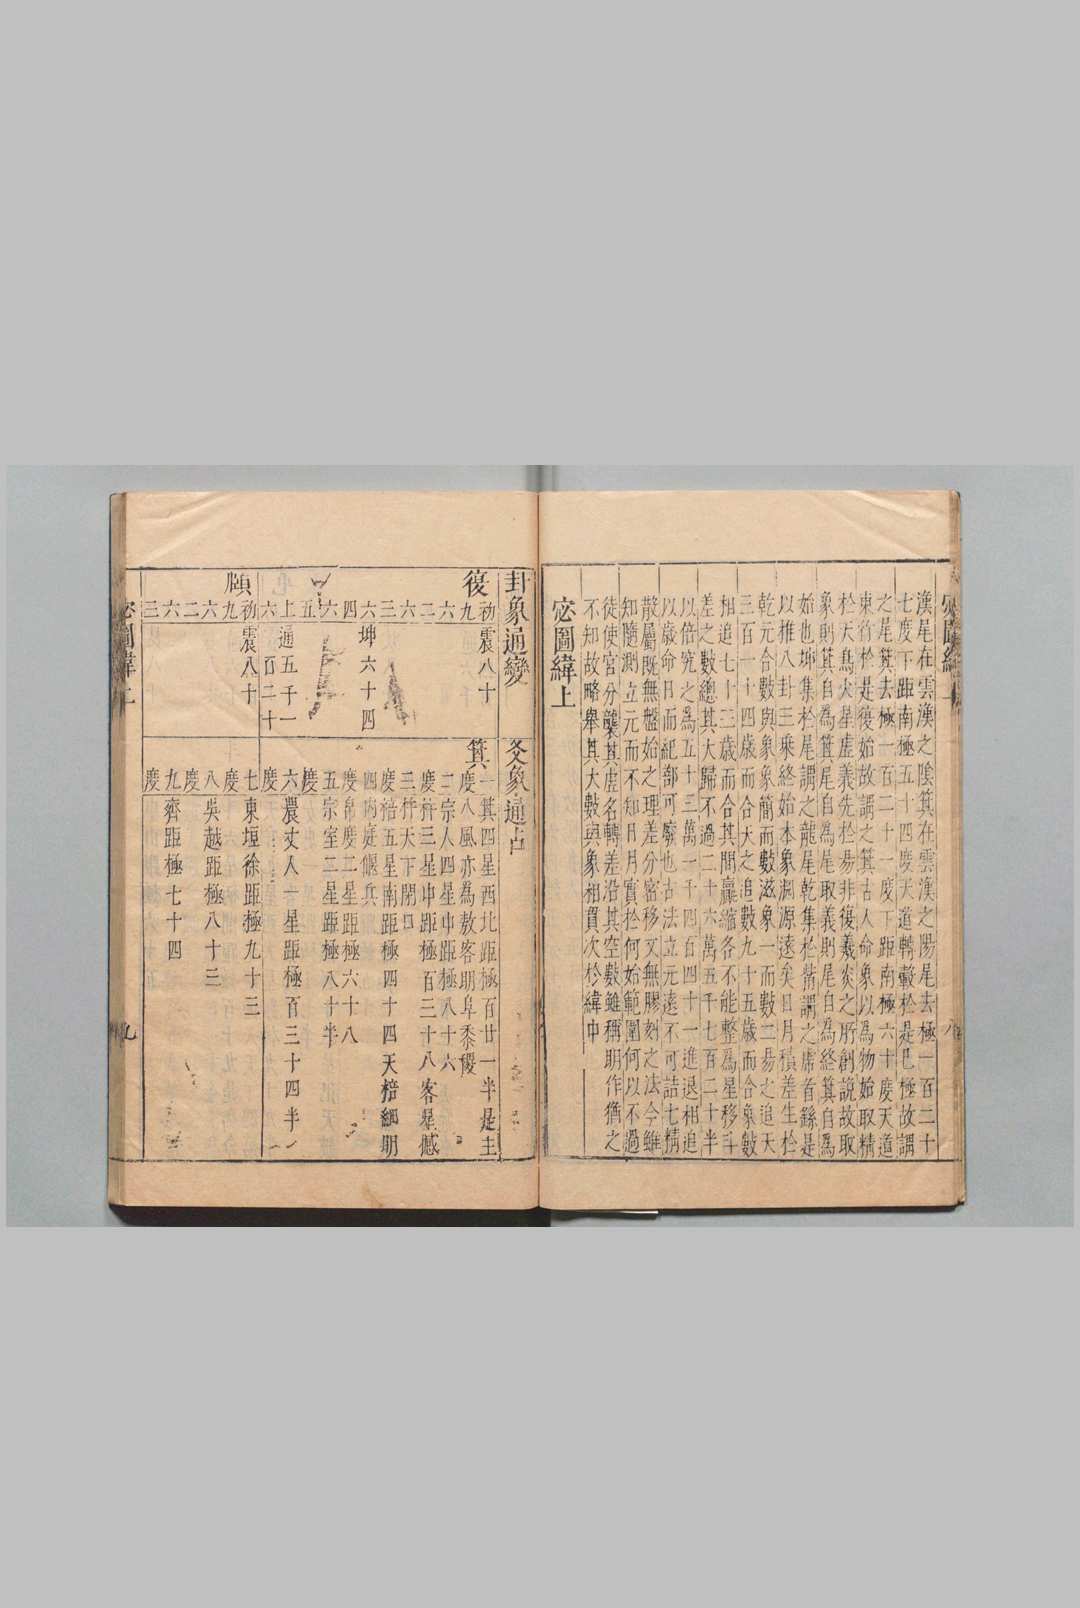 漢尾在雲漢之陰箕在雲漢之陽尾去極一百二十
七度下距南極五十四度天道轉轂於是巳極故謂
之尾箕去極一百二十一度下距南極六十度天道
東行於是復始故謂之箕古人命象以為物始取精
於天鳥火星虛義先於易非復羲炎之所創說故取
象躬箕自為箕尾自為尾取義躬尾自為終箕自為
始也坤集於尾謂之龍尾乾集於觜謂之虎首繇是
以推八卦三乘終始本象淵源遠矣日月積差生於
乾元合數與象象簡而數滋象一而數二易之追天
三百一十四歲而合天之追數九十五歲而合象數
相追七十三歲而合其間贏縮各不能整為星移斗
差之數總其大歸不過二十六萬五千七百二十半
以倍究之為五十三萬一千四百四十一進退相追
以歲命日而紀部可廢也古法立元遠不可詰七精
散屬既無盤始之理差分密移又無膠刻之法今雖
知隨測立元而不知日月實於何始範圍何以不過
徒使宮分襲其虛名轉差沿其空數雖稱明作猶之
不知故略舉其大數與象相貫次於緯中
宓圖緯上
卦象通變
爻象通占
復
初九 震八十
六二
六三
六四 坤六十四
六五
上六 通五千一百二十
頤
初九 震八十
六二
六三
箕
一度 箕四星西北距極百廿一半是主八風亦為敖客明阜黍稷
二度 宗人四星中距極八十六
三度 杵三星中距極百三十八客舂憾杵天下閉口
四度 棓五星南距極四十四天棓細明內庭偃兵
五度 帛度二星距極六十八宗室二星距極八十半
六度 農丈人一星距極百三十四半
七度 東垣徐距極九十三
八度 吳越距極八十三
九度 齊距極七十四
宓圖緯上
九